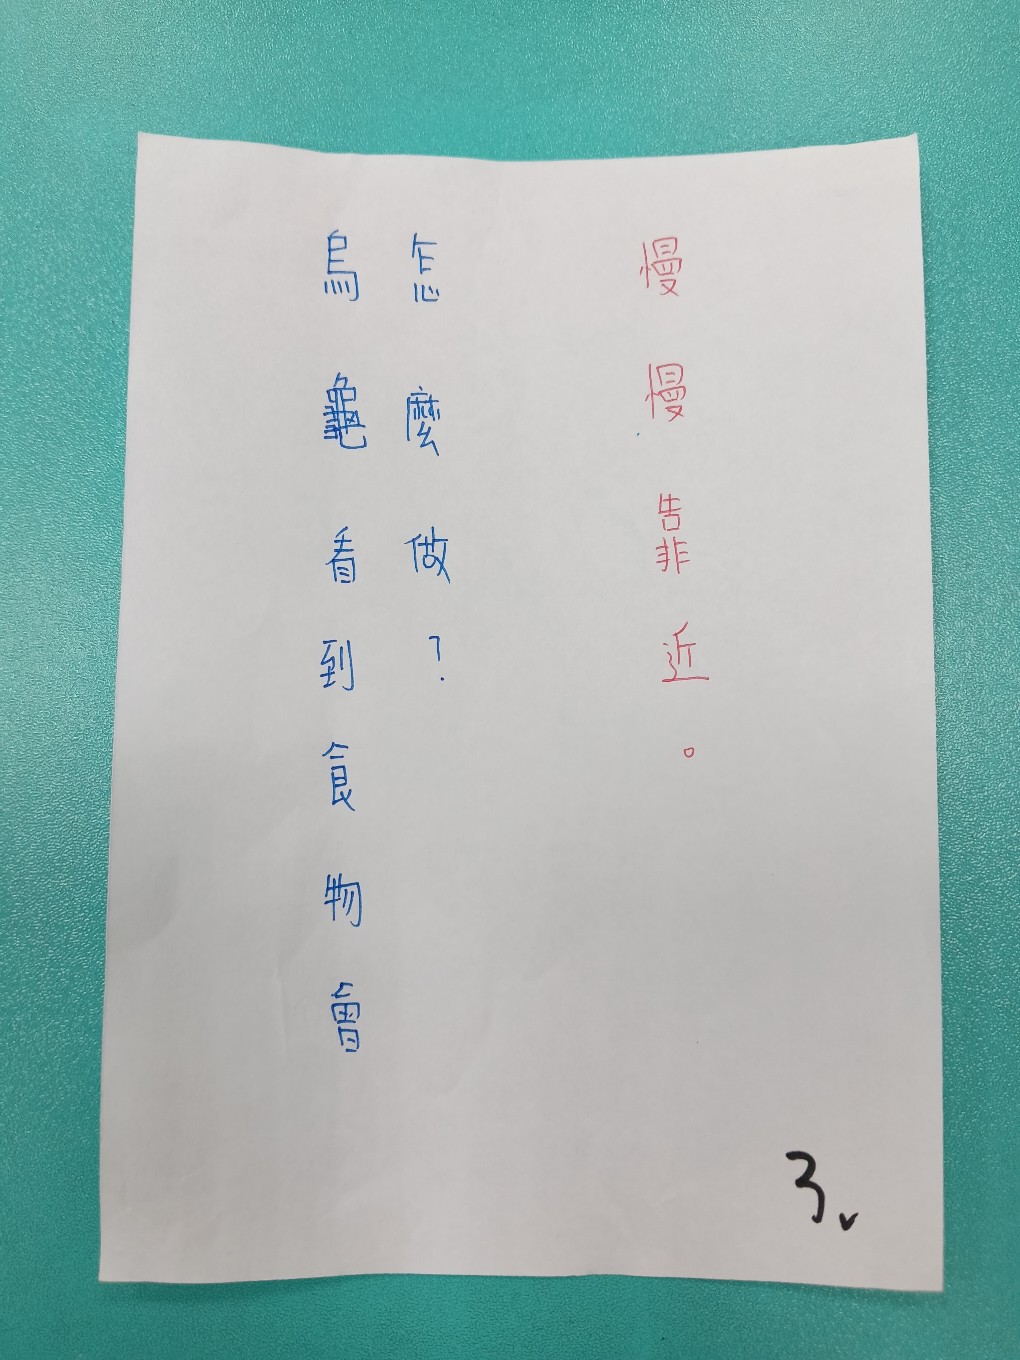 烏龜看到食物會
怎麼做？
慢慢靠近。
3